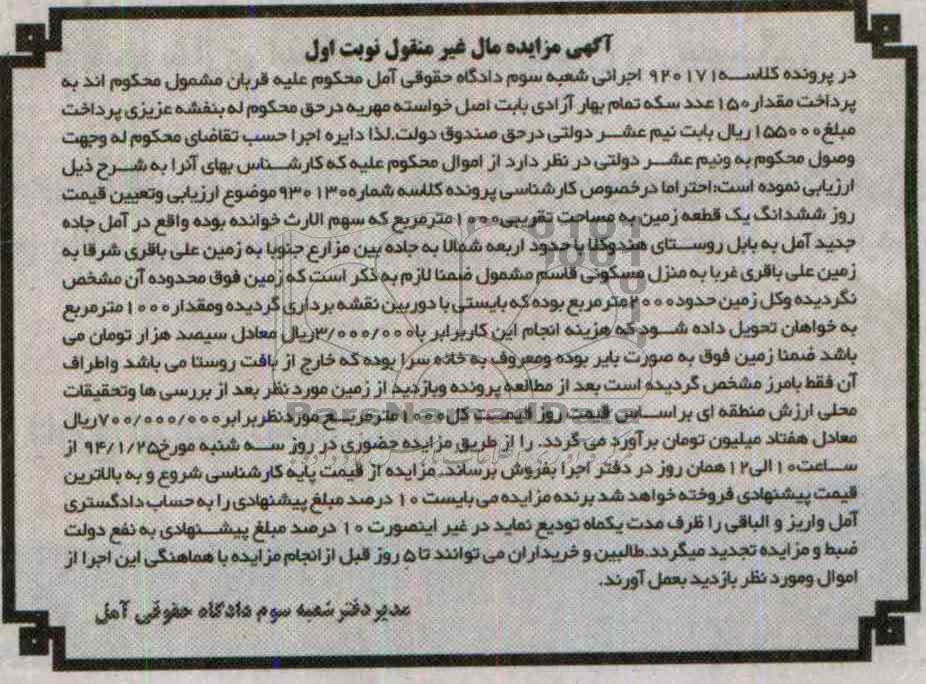 آگهی مزایده مال غیر منقول نوبت اول
در پرونده کلاسه ۹۲۰۱۷۱ اجرائی شعبه سوم دادگاه حقوقی آمل محکوم علیه قربان مشمول محکوم اند به
پرداخت مقدار ۱۵۰ عدد سکه تمام بهار آزادی بابت اصل خواسته مهریه در حق محکوم له بنفشه عزیزی پرداخت
مبلغ ۱۵۵۰۰۰ ریال بابت نیم عشر دولتی در حق صندوق دولت.لذا دایره اجرا حسب تقاضای محکوم له وجهت
وصول محکوم به ونیم عشر دولتی در نظر دارد از اموال محکوم علیه که کارشناس بهای آنرا به شرح ذیل
ارزیابی نموده است:احتراما درخصوص کارشناسی پرونده کلاسه شماره ۹۳۰۱۳۰ موضوع ارزیابی وتعیین قیمت
روز ششدانگ یک قطعه زمین به مساحت تقریبی ۱۰۰۰ مترمربع که سهم الارث خوانده بوده واقع در آمل جاده
جدید آمل به بابل روستای هندوکلا با حدود اربعه شمالا به جاده بین مزارع جنوبا به زمین علی باقری شرقا به
زمین علی باقری غربا به منزل مسکونی قاسم مشمول ضمنا لازم به ذکر است که زمین فوق محدوده آن مشخص
نگردیده وکل زمین حدود ۲۰۰۰ مترمربع بوده که بایستی با دوربین نقشه برداری گردیده ومقدار ۱۰۰۰ مترمربع
به خواهان تحویل داده شود که هزینه انجام این کاربرابر با ۳/۰۰۰/۰۰۰ ریال معادل سیصد هزار تومان می
باشد ضمنا زمین فوق به صورت بایر بوده ومعروف به خانه سرا بوده که خارج از بافت روستا می باشد واطراف
آن فقط بامرز مشخص گردیده است بعد از مطالعه پرونده وبازدید از زمین مورد نظر بعد از بررسی ها وتحقیقات
محلی ارزش منطقه ای براساس قیمت روز قیمت کل ۱۰۰۰ مترمربع موردنظر برابر ۷۰۰/۰۰۰/۰۰۰ ریال
معادل هفتاد میلیون تومان برآورد می گردد. را از طریق مزایده حضوری در روز سه شنبه مورخ ۹۴/۱/۲۵ از
ساعت ۱۰ الی ۱۲ همان روز در دفتر اجرا بفروش برساند. مزایده از قیمت پایه کارشناسی شروع و به بالاترین
قیمت پیشنهادی فروخته خواهد شد برنده مزایده می بایست ۱۰ درصد مبلغ پیشنهادی را به حساب دادگستری
آمل واریز و الباقی را ظرف مدت یکماه تودیع نماید در غیر اینصورت ۱۰ درصد مبلغ پیشنهادی به نفع دولت
ضبط و مزایده تجدید میگردد.طالبین و خریداران می توانند تا ۵ روز قبل از انجام مزایده با هماهنگی این اجرا از
اموال ومورد نظر بازدید بعمل آورند.
مدیر دفتر شعبه سوم دادگاه حقوقی آمل